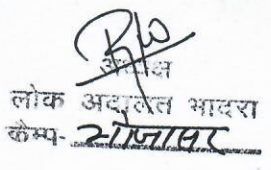 अध्यक्ष
लोक अदालत भादरा
कैम्प- गोजासर